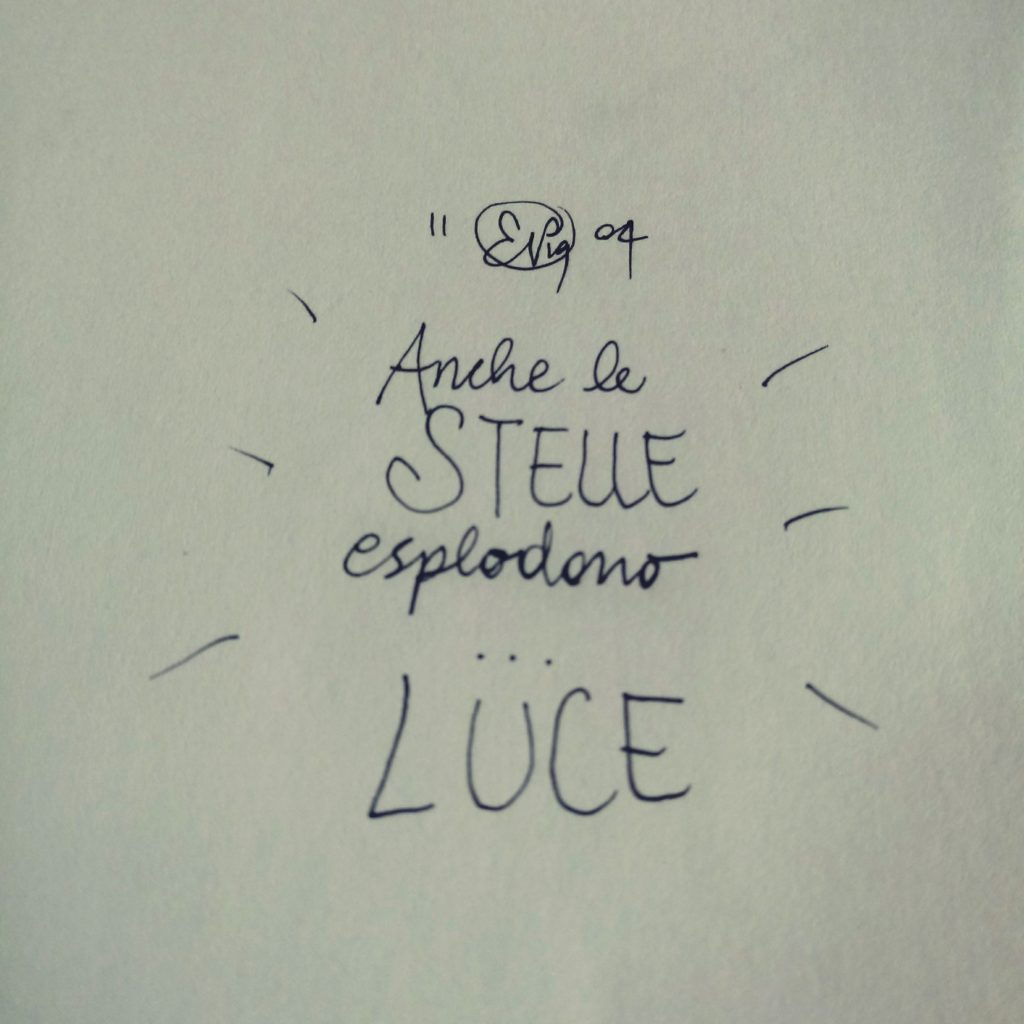 11 04
Anche le
STELLE
esplodono
...
LUCE